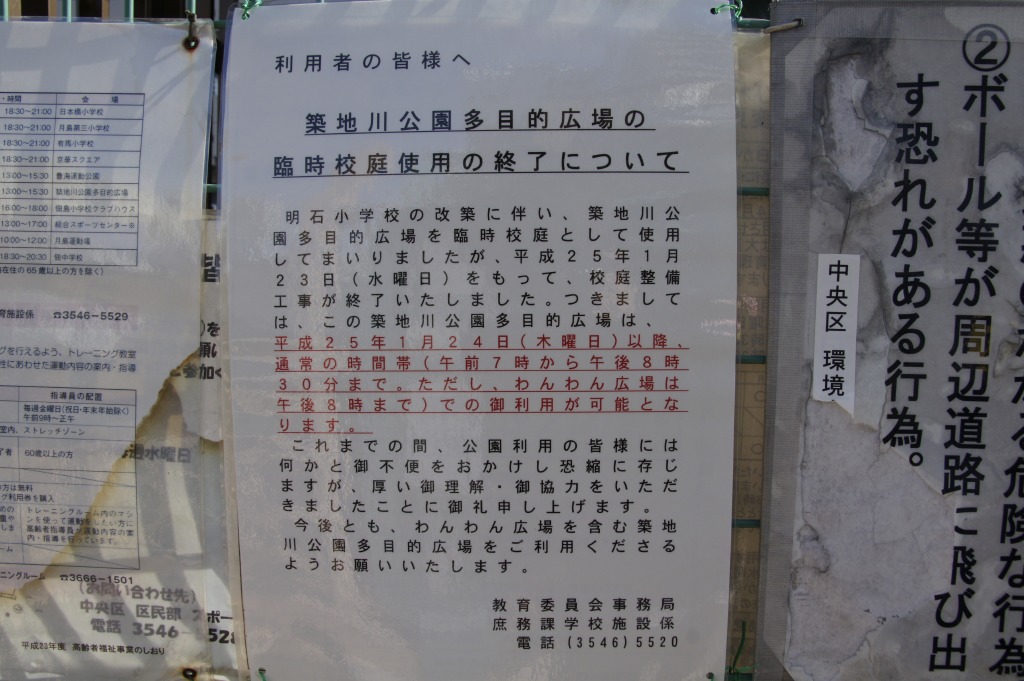 利用者の皆様へ
築地川公園多目的広場の
臨時校庭使用の終了について
明石小学校の改築に伴い、築地川公
園多目的広場を臨時校庭として使用
してまいりましたが、平成25年1月
23日(水曜日)をもって、校庭整備
工事が終了いたしました。つきまして
は、この築地川公園多目的広場は、
平成25年1月24日(木曜日)以降、
通常の時間帯(午前7時から午後8時
30分まで。ただし、わんわん広場は
午後8時まで)での御利用が可能とな
ります。
これまでの間、公園利用の皆様には
何かと御不便をおかけし恐縮に存じ
ますが、厚い御理解・御協力をいただ
きましたことに御礼申し上げます。
今後とも、わんわん広場を含む築地
川公園多目的広場をご利用くださる
ようお願いいたします。
教育委員会事務局
庶務課学校施設係
電話(3546)5520
・時間 会場
18:30~21:00 日本橋小学校
18:30~21:00 月島第三小学校
18:30~21:00 有馬小学校
18:30~21:00 京華スクエア
13:00~15:30 豊海運動公園
13:00~15:30 築地川公園多目的広場
16:00~18:00 佃島小学校クラブハウス
13:00~17:00 総合スポーツセンター※
10:00~12:00 月島運動場
18:30~20:30 佃中学校
在住の65歳以上の方を除く)
育施設係 ☎3546-5529
グを行えるよう、トレーニング教室
性にあわせた運動内容の案内・指導
指導員の配置
毎週金曜日(祝日・年末年始除く)
午前9時~正午
室内、ストレッチゾーン
了者 60歳以上の方
方は無料
グ利用券を購入
トレーニングルーム内のマシ
ンを使って運動をしたい方に
高齢者指導員が運動内容の案
内・指導を行っています。
ニングルーム ☎3666-1501
(お問い合わせ先)
中央区 区民部 スポー
電話 3546-
平成23年度 高齢者福祉事業のしおり
水曜日
②ボール等が周辺道路に飛び出
す恐れがある行為。
中央区 環境